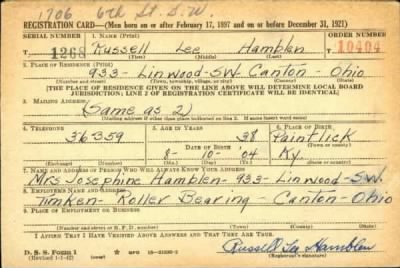 1706 6th St. S.W
REGISTRATION CARD—(Men born on or after February 17, 1897 and on or before December 31, 1921)
SERIAL NUMBER 1. NAME (Print) ORDER NUMBER
T 1268 Russell Lee Hamblen 10404
(First) (Middle) (Last)
2. PLACE OF RESIDENCE (Print)
933-Linwood-SW. Canton-Ohio
(Number and street) (Town, township, village, or city) (County) (State)
[THE PLACE OF RESIDENCE GIVEN ON THE LINE ABOVE WILL DETERMINE LOCAL BOARD
JURISDICTION; LINE 2 OF REGISTRATION CERTIFICATE WILL BE IDENTICAL]
3. MAILING ADDRESS
(Same as 2)
[Mailing address if other than place indicated on line 2. If same insert word same]
4. TELEPHONE 5. AGE IN YEARS 6. PLACE OF BIRTH
36359 38 Paintlick
DATE OF BIRTH (Town or county)
8- 10- '04 Ky.
(Exchange) (Number) (Mo.) (Day) (Yr.) (State or country)
7. NAME AND ADDRESS OF PERSON WHO WILL ALWAYS KNOW YOUR ADDRESS
Mrs Josephine Hamblen-933-Linwood-SW.
8. EMPLOYER'S NAME AND ADDRESS
Timken-Roller Bearing-Canton-Ohio
9. PLACE OF EMPLOYMENT OR BUSINESS
(Number and street or R. F. D. number) (Town) (County) (State)
I AFFIRM THAT I HAVE VERIFIED ABOVE ANSWERS AND THAT THEY ARE TRUE.
D. S. S. Form 1
(Revised 1-1-42) (over) Russell Lee Hamblen
(Registrant's signature)